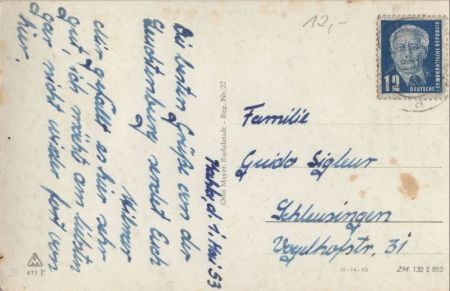 12,-
Kahla, d. 1. Mai 53
Die besten Grüße von der
Leuchtenburg sendet Euch
Heimer
Mir gefällt es hier sehr
gut, ich möcht am liebsten
gar nicht wieder fort von
hier.
Otto Meyer, Rudolstadt - Reg. Nr. 22
DEUTSCHE
DEMOKRATISCHE REPUBLIK
12
Familie
Guido Sigleur
Schleusingen
Vogelhofstr. 31
473 F
IV-14-48
ZM 139 2 850